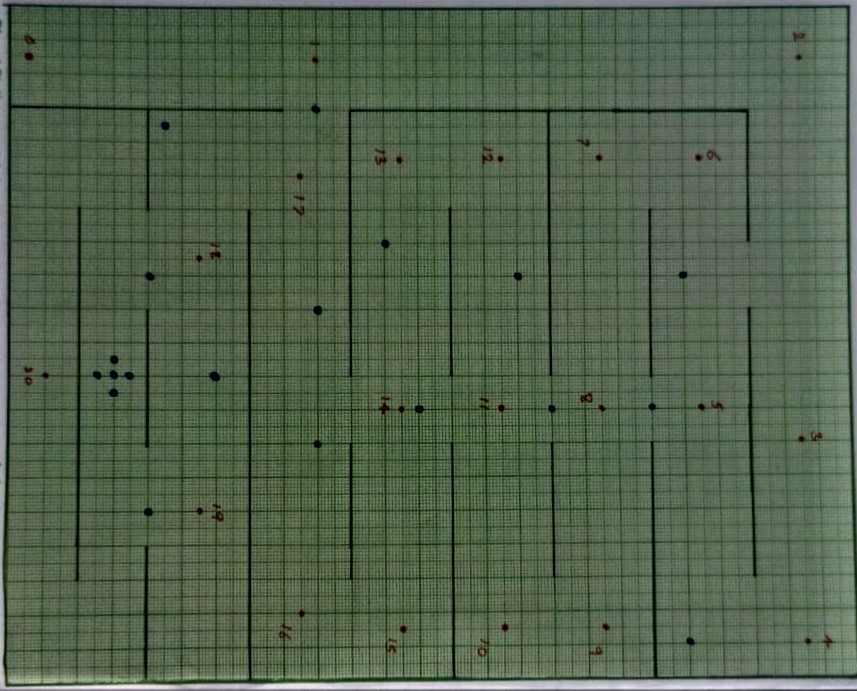 0
1
2
13
12
7
6
17
18
20
14
11
8
5
3
19
16
15
10
9
4